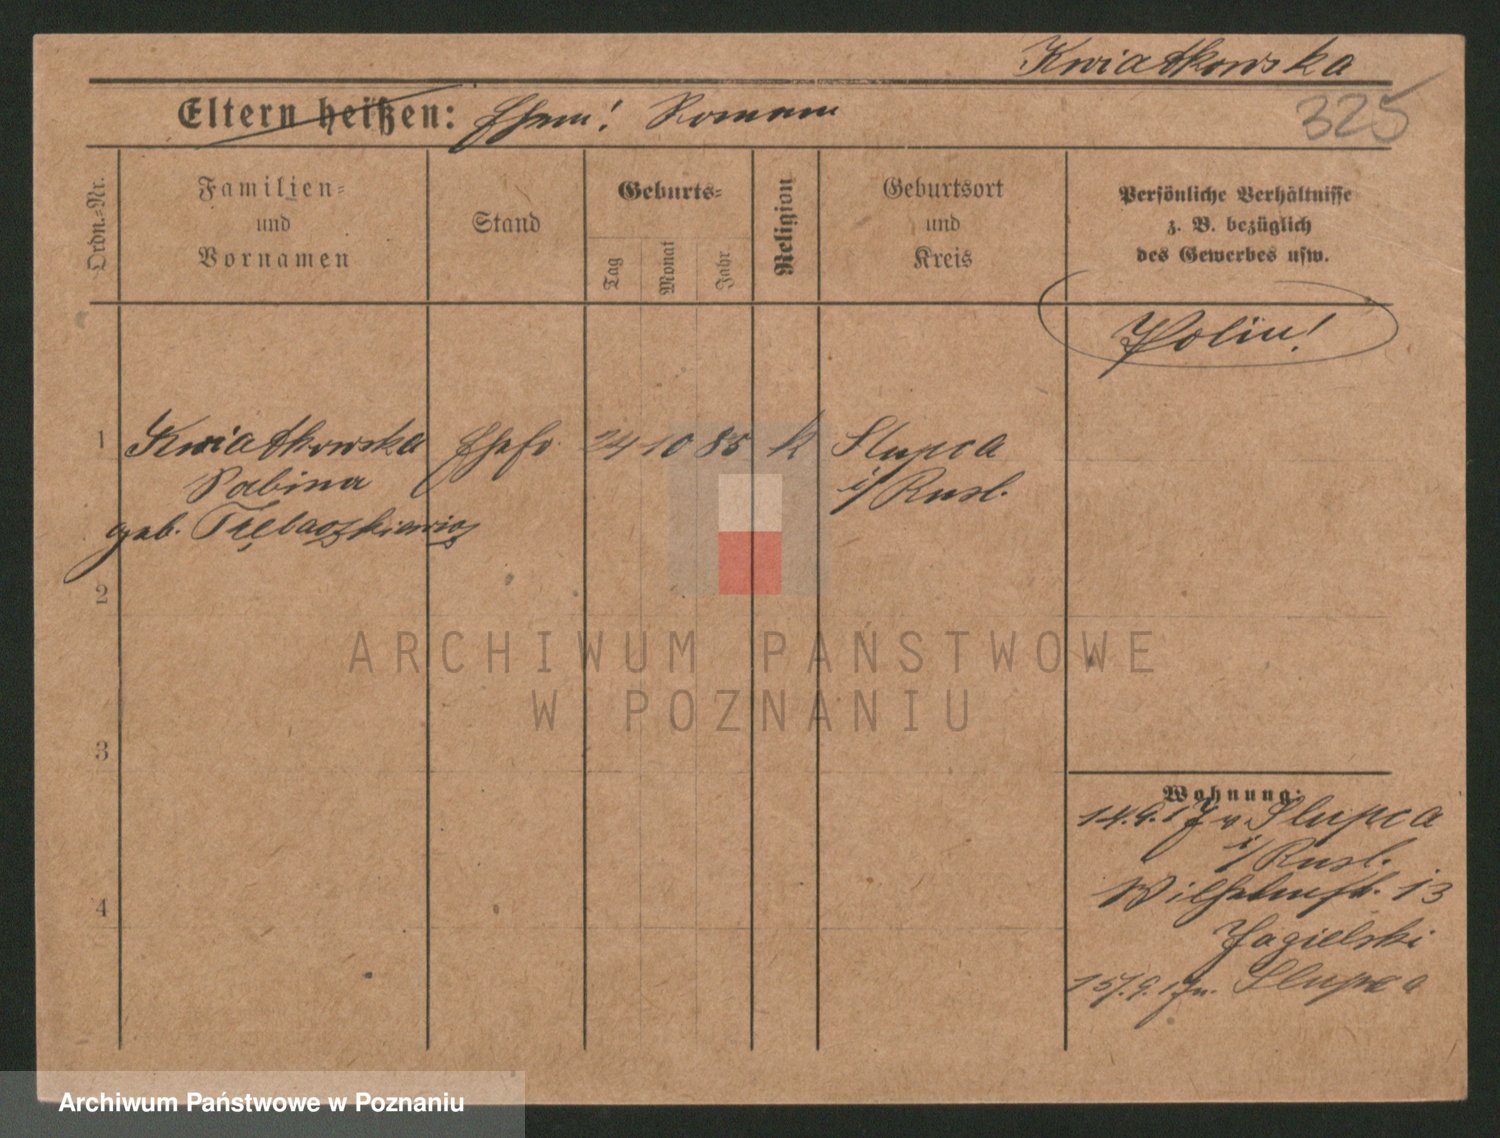 Kwiatkowska
325
Eltern heißen: Ehem! Roman
Ordn.-Nr.
Familien-
und
Vornamen
Stand
Geburts-
Tag
Monat
Jahr
Religion
Geburtsort
und
Kreis
Persönliche Verhältnisse
z. B. bezüglich
des Gewerbes usw.
Polin!
1 Kwiatkowska Ehefr. 24 10 85 k Slupca
Sabina i/ Rusl.
geb. Trębaczkiewicz
2
3
4
Wohnung:
14.9.17 v. Slupca
i/ Rusl.
Wilhelmstr. 13
Jagielski
15/.9.17 n. Slupca
ARCHIWUM PAŃSTWOWE
W POZNANIU
Archiwum Państwowe w Poznaniu